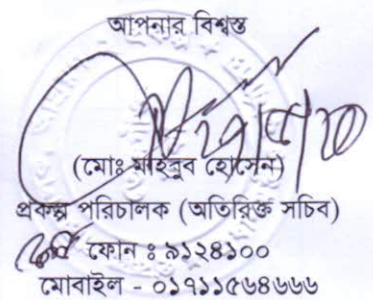 আপনার বিশ্বস্ত
(মোঃ মাহবুব হোসেন)
প্রকল্প পরিচালক (অতিরিক্ত সচিব)
ফোন ঃ ৯১২৪১০০
মোবাইল - ০১৭১১৫৬৪৬৬৬